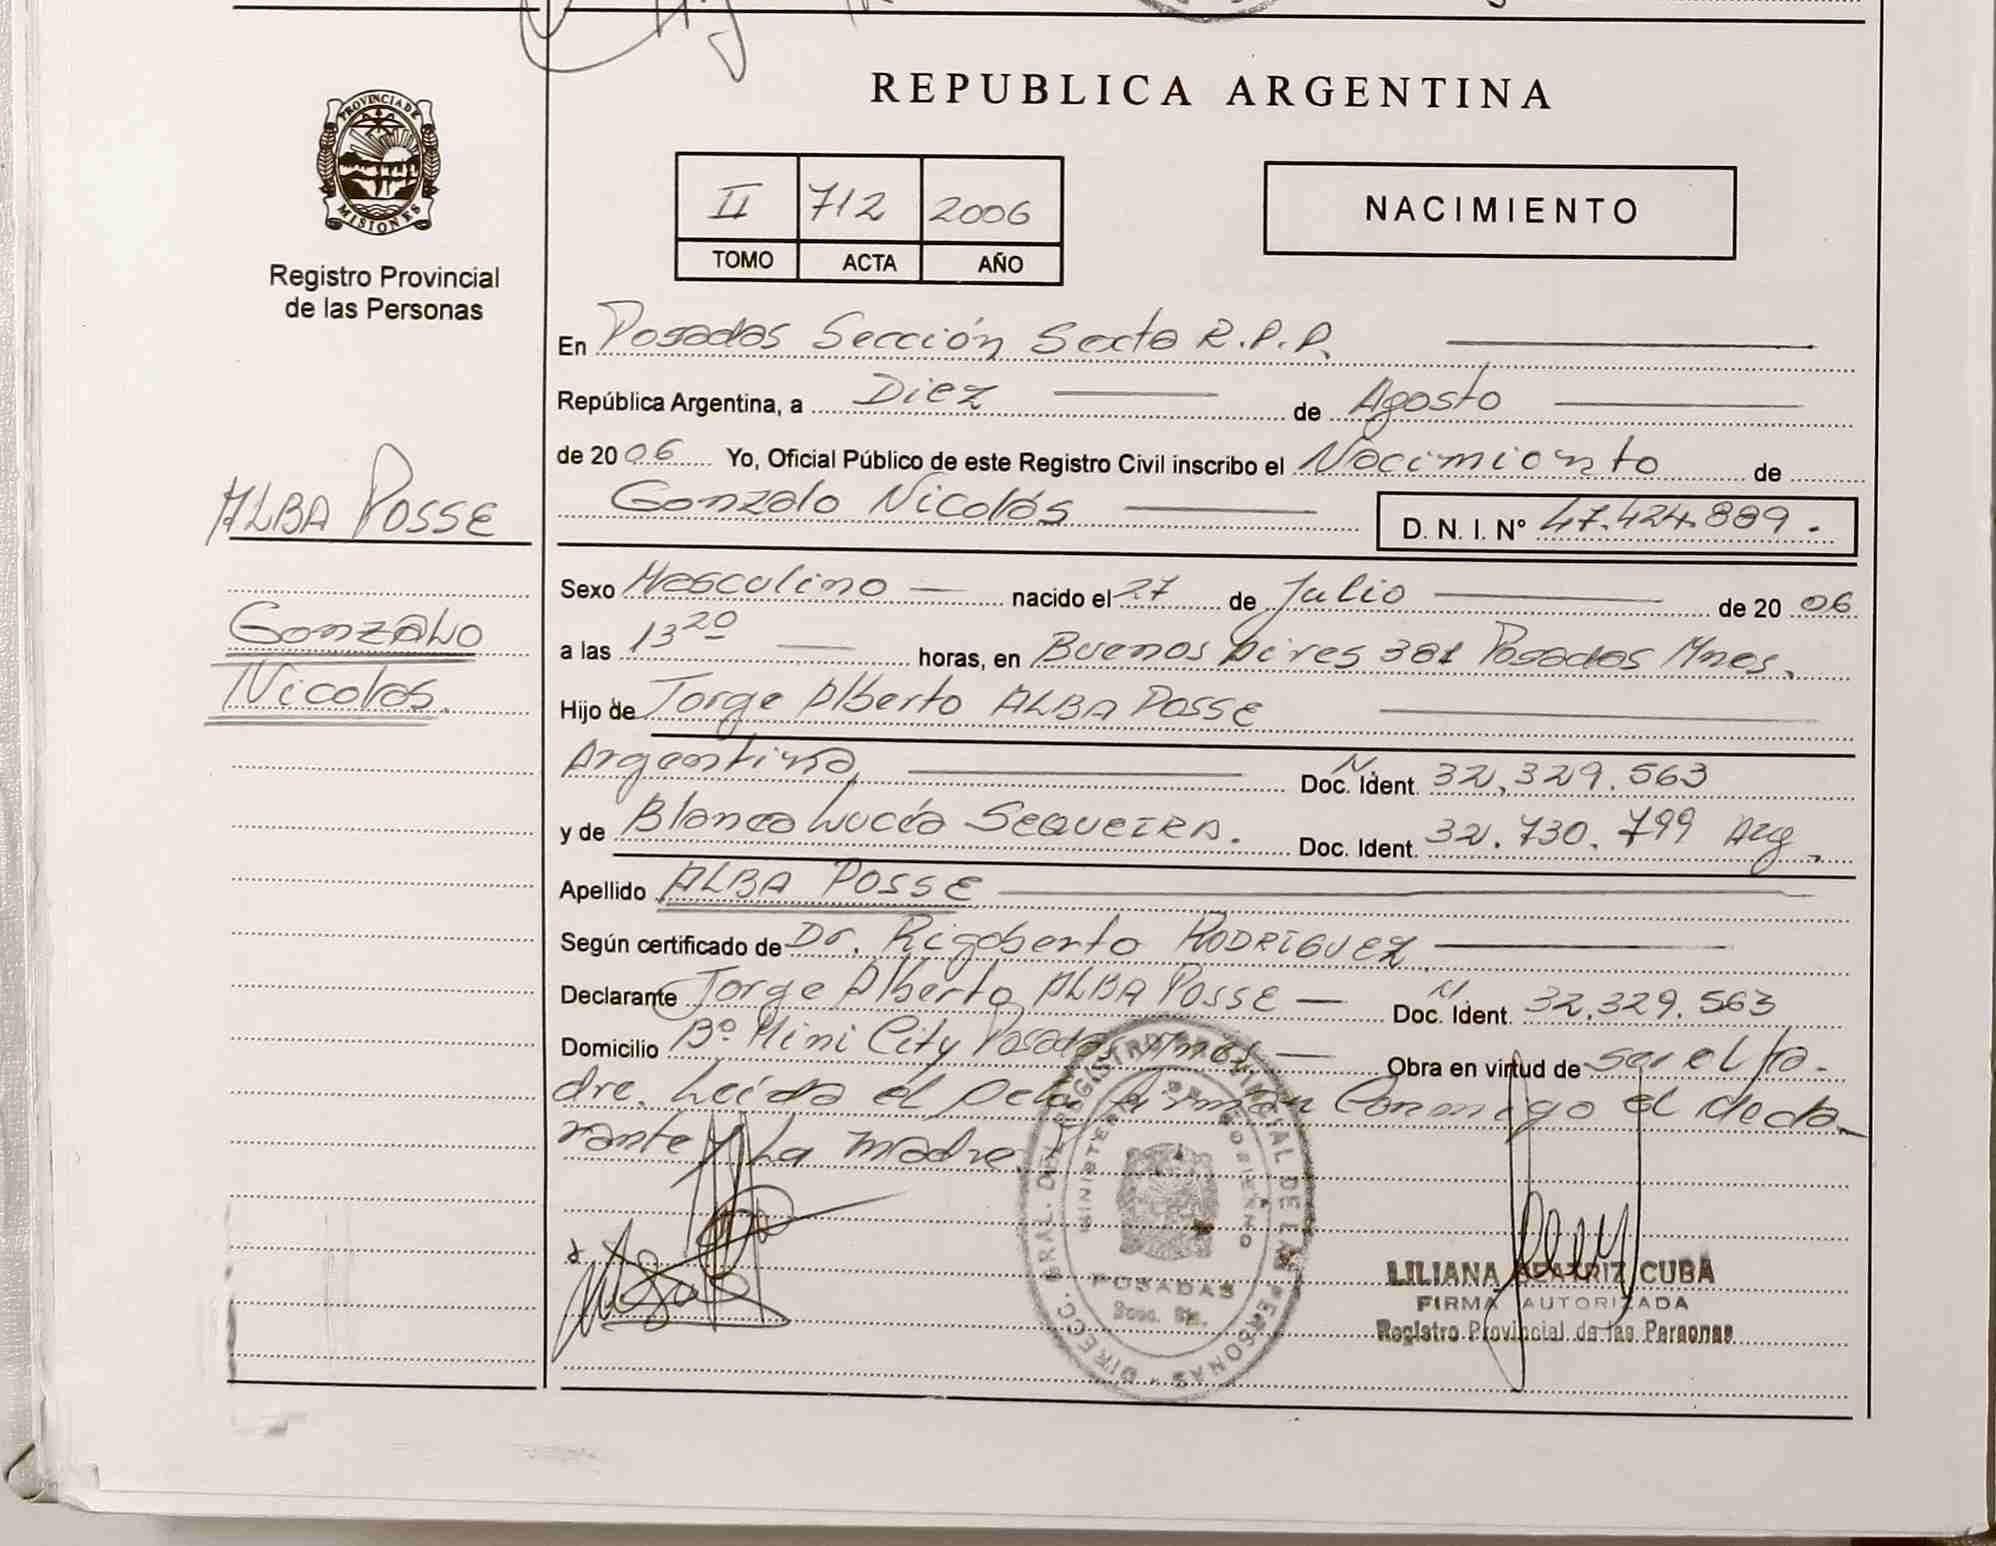 PROVINCIA DE
MISIONES
Registro Provincial
de las Personas
ALBA POSSE
Gonzalo
Nicolás.
REPUBLICA ARGENTINA
II 712 2006
TOMO ACTA AÑO
NACIMIENTO
En Posadas Sección Sexta R.P.P.
República Argentina, a Diez de Agosto
de 2006 Yo, Oficial Público de este Registro Civil inscribo el Nacimiento de
Gonzalo Nicolás D. N. I. Nº 47.424.889.
Sexo Masculino nacido el 27 de Julio de 20 06
a las 13 20 horas, en Buenos Aires 381 Posadas Mnes.
Hijo de Jorge Alberto ALBA POSSE
Argentino Doc. N. Ident. 32.329.563
y de Blanca Lucía SEQUEIRA. Doc. Ident. 32.730.799 Arg.
Apellido ALBA POSSE
Según certificado de Dr. Rigoberto RODRIGUEZ
Declarante Jorge Alberto ALBA POSSE Doc. N. Ident. 32.329.563
Domicilio Bº Mini City Posadas Mnes Obra en virtud de ser el pa-
dre. Leída el acta firman conmigo el decla-
rante y La madre
DIRECC. GRAL. DEL REGISTRO PROVINCIAL DE LAS PERSONAS
MINISTERIO DE GOBIERNO
POSADAS
Secc. 6ta.
LILIANA BEATRIZ CUBA
FIRMA AUTORIZADA
Registro Provincial de las Personas